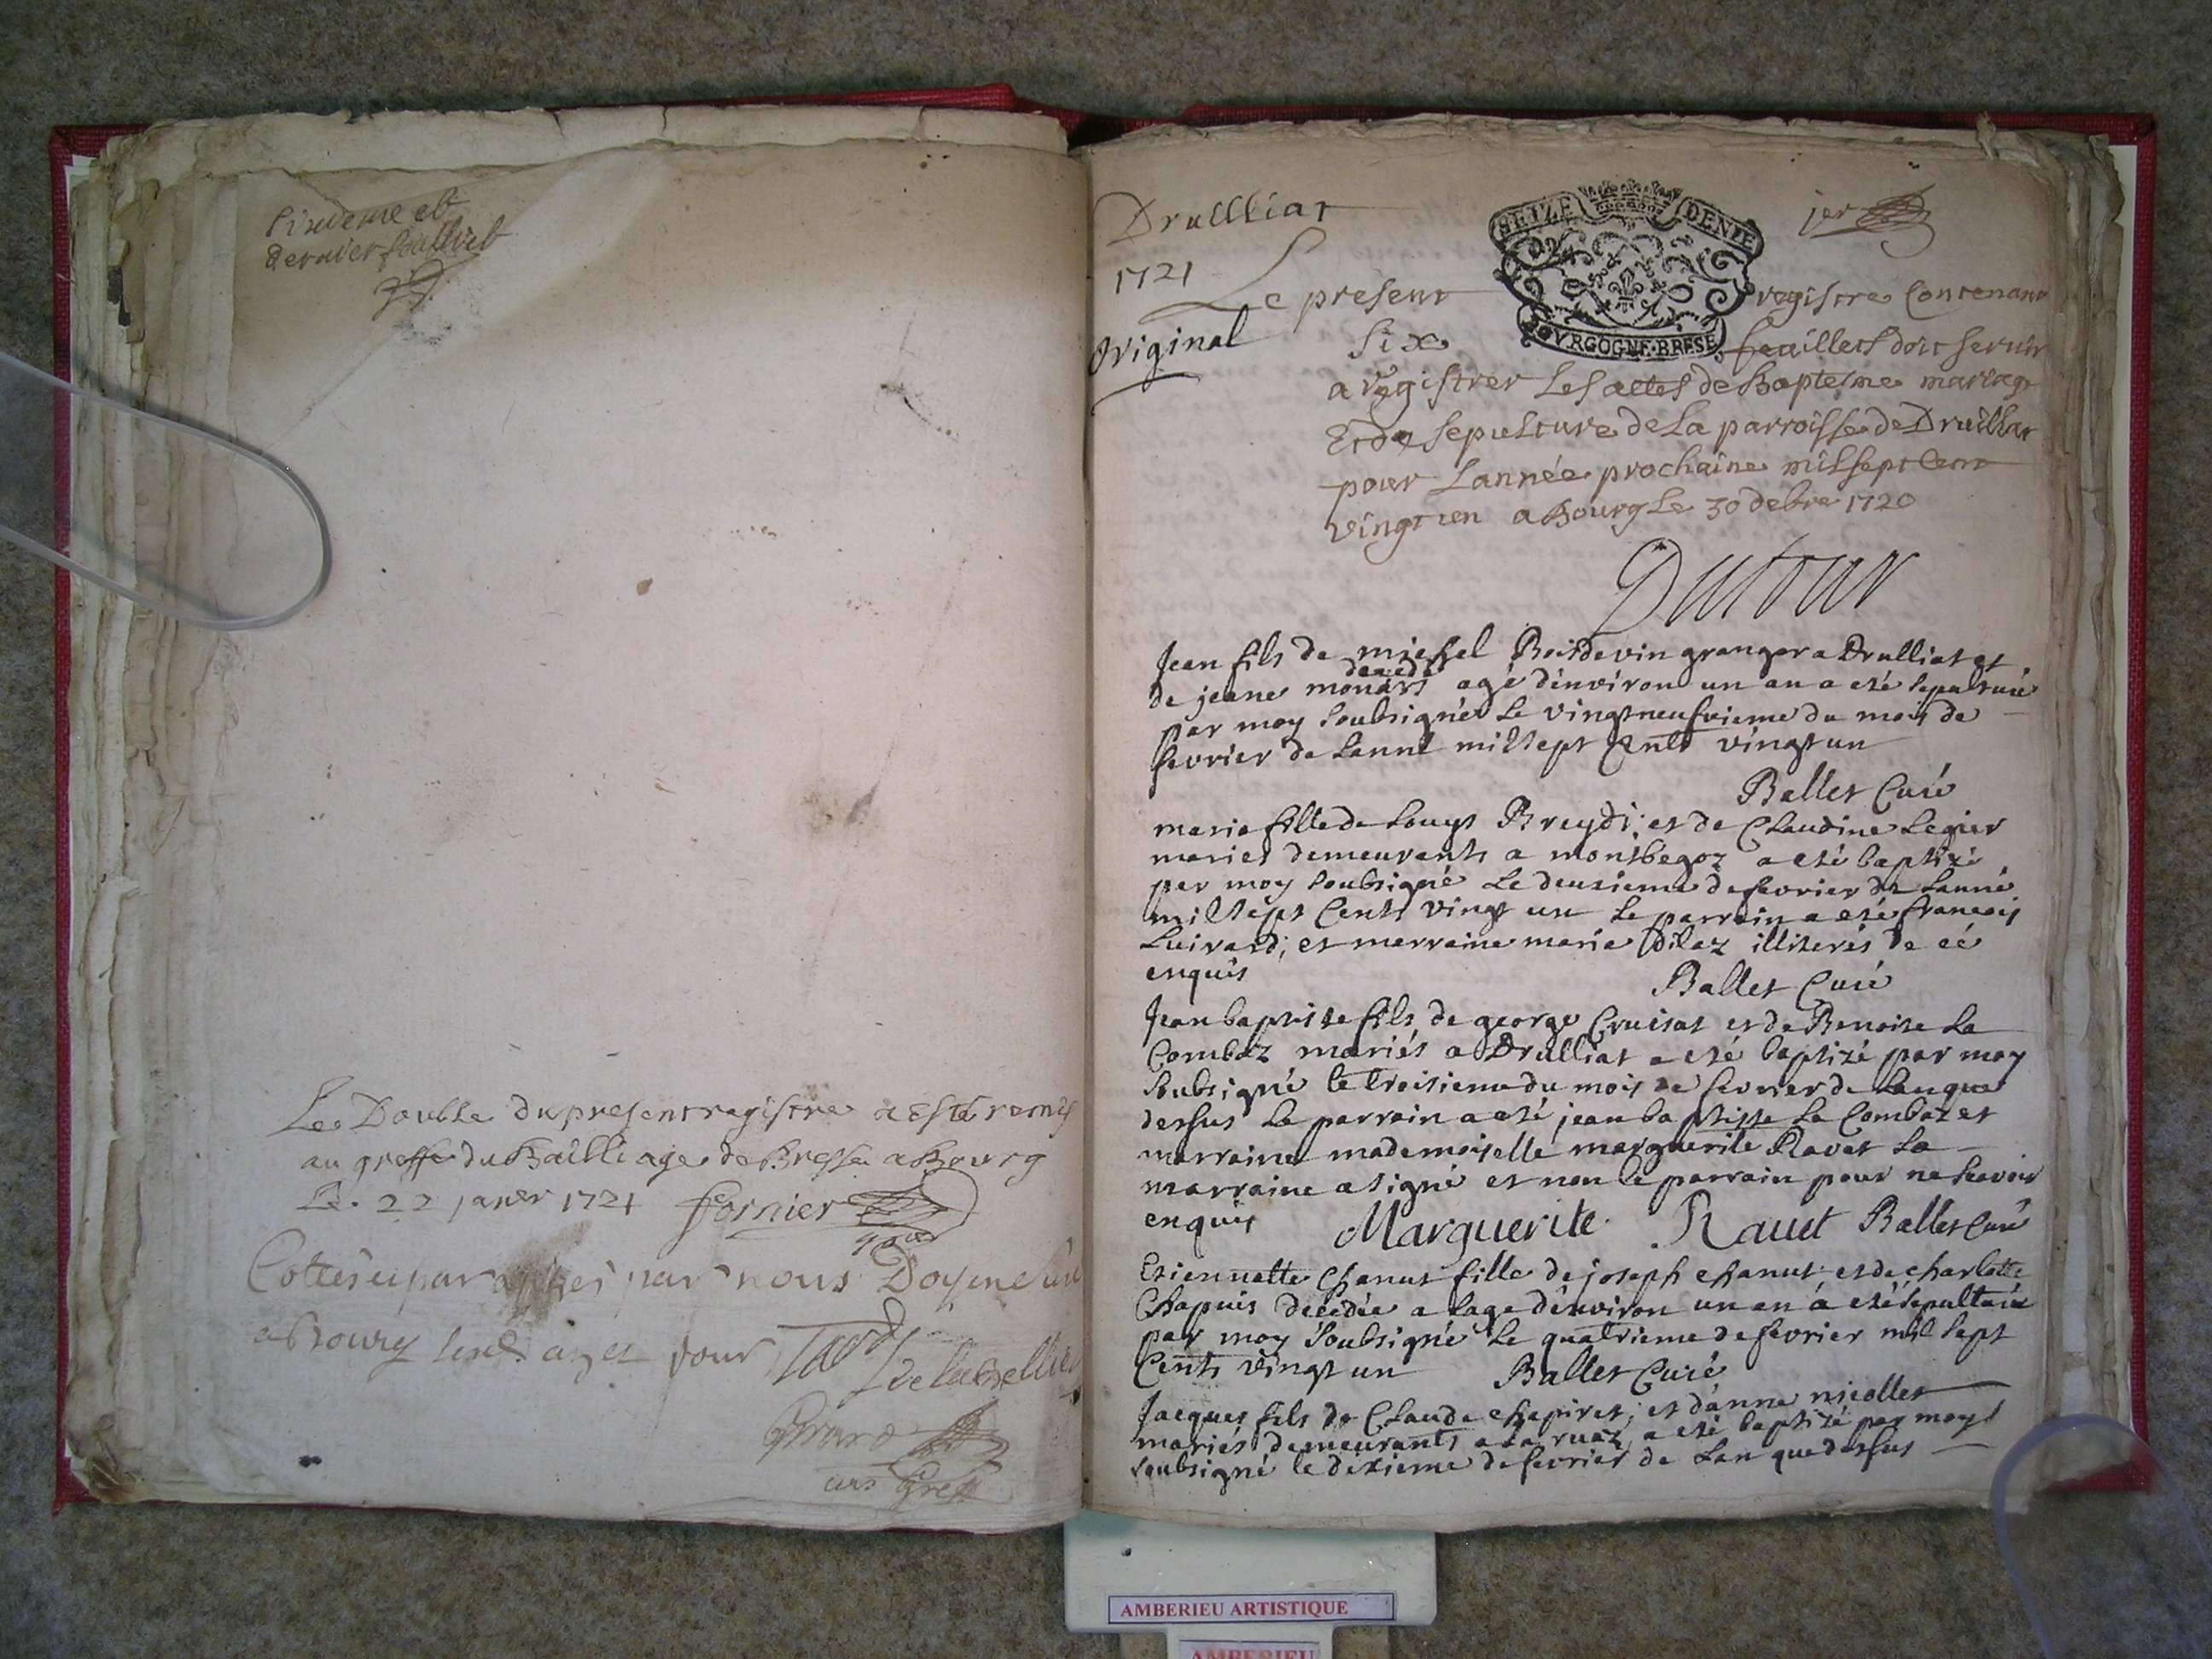 dernier feuillet
Le Double du present registre a Esté remis
au greffe du Bailliage de Bresse a Bourg
Le 22 janer 1721 fornier
par nous Doyene
a Bourg
Drullliat
1721
Original
SEIZE DENIE
BOVRGOGNE·BRESE
1er
Le present registre Contenant
six feuillets doit servir
aregistrer Les actes de Baptesme mariage
Et de sepulture de La parroisse de Druilliat
pour Lannée prochaine mil sept Cent
vingt un a Bourg Le 30 debre 1720
Dutour
Jean fils de michel Boisdevin granger a Drulliat et
decedé
de jeane monars agé d'environ un an a eté sepulturé
par moy soubsigné le vingtneufvieme du mois de
fevrier de Lanné mil sept Cents vingt un
Ballet Curé
marie fille de Louys Breydi; et de Claudine Legier
mariés demeurants a montbegoz a eté baptizé
par moy soubsigné Le deuxieme de fevrier de Lanné
mil sept Cents vingt un le parrain a eté francois
Luirard; et marraine marie Dilaz illiterés de cé
enquis
Ballet Curé
Jean baptiste fils de george Cruisat et de Benoite La
Combaz mariés a Drulliat a eté baptizé par moy
soubsigné le troisieme du mois de fevrier de Lan que
dessus Le parrain a eté jean baptiste La Combaz et
marraine mademoiselle marguerite Ravet La
marraine a signé et non le parrain pour ne scavoir
enquis Marguerite Rauet Ballet Curé
Etiennette Chanut fille de joseph chanut et de charlotte
Chapuis decedée a lage d'environ un an a eté sepulturée
par moy soubsigné le quatrieme de fevrier mil sept
Cents vingt un Ballet Curé
Jacques fils de Claude chapiret; et d'anne nicollet
mariés demeurants a La ruaz a eté baptizé par moy
soubsigné le dixieme de fevrier de Lan que dessus
AMBERIEU ARTISTIQUE
AMBERIEU